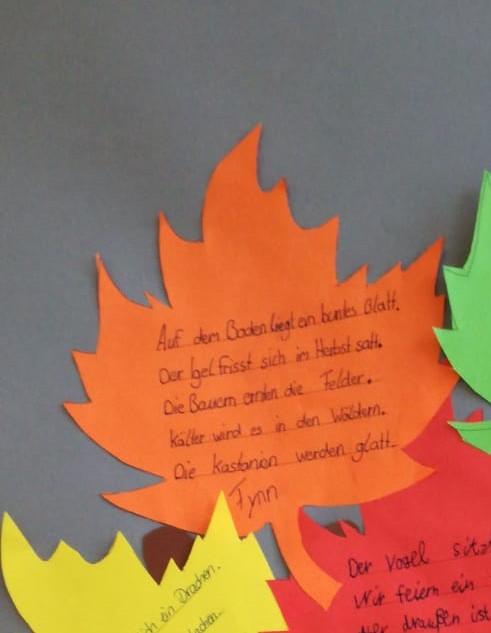 Auf dem Boden liegt ein buntes Blatt.
Der Igel frisst sich im Herbst satt.
Die Bauern ernten die Felder.
Kälter wird es in den Wäldern.
Die Kastanien werden glatt.
Fynn
ein Drachen.
Der Vogel sitzt
Wir feiern ein
draußen ist